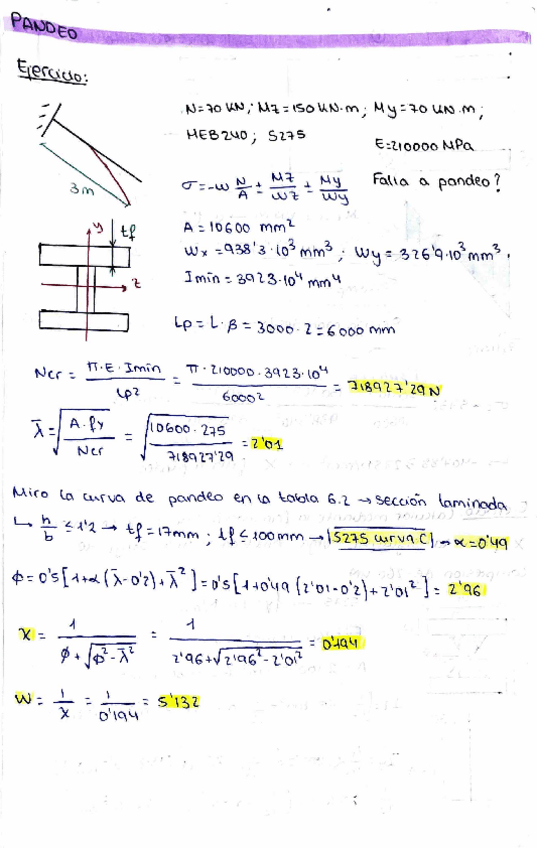 PANDEO
Ejercicio:
N=70 KN; Mz=150 KN·m; My=70 KN·m;
HEB240; S275
E=210000 MPa
3m
σ=-w N/A ± Mz/Wz ± My/Wy
Falla a pandeo?
y
tf
z
A = 10600 mm²
Wx = 938'3·10³ mm³; Wy = 326'9·10³ mm³.
Imin = 3923·10⁴ mm⁴
Lp = L·β = 3000·2 = 6000 mm
Ncr = π·E·Imin / Lp² = π·210000·3923·10⁴ / 6000² = 718927'29 N
λ̄ = √(A·fy / Ncr) = √(10600·275 / 718927'29) = 2'01
Miro la curva de pandeo en la tabla 6.2 → sección laminada
↳ h/b ≤ 1'2 → tf = 17mm; tf ≤ 100mm → S275 curva C → α = 0'49
ϕ = 0'5[1+α(λ̄-0'2)+λ̄²] = 0'5[1+0'49(2'01-0'2)+2'01²] = 2'96
χ = 1 / ϕ+√(ϕ²-λ̄²) = 1 / 2'96+√(2'96²-2'01²) = 0'194
W = 1/χ = 1/0'194 = 5'132